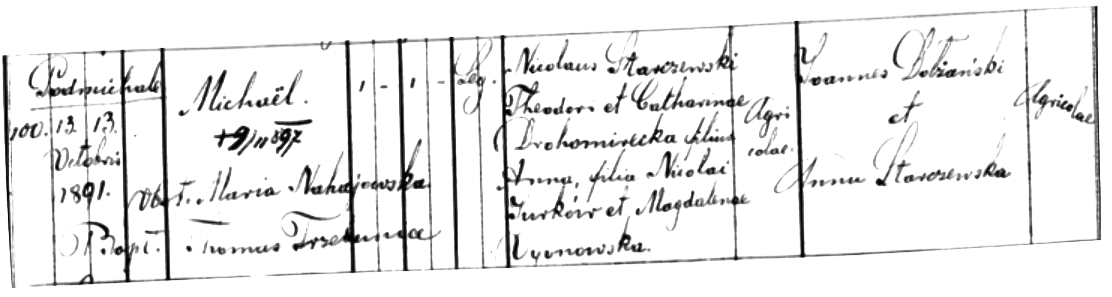 Podmichale
100. 13. 13.
Octobris
1891.
Michaël.
1 - 1 -
Leg.
Nicolaus Starczewski
Theodori et Catharinae
Drohomirecka filius
Anna, filia Nicolai
Jurków et Magdalenae
Agri
colae.
Joannes Dobżański
et
Anna Starczewska
Agricolae
Obst. Maria Nahajowska
Bapt. Thomas